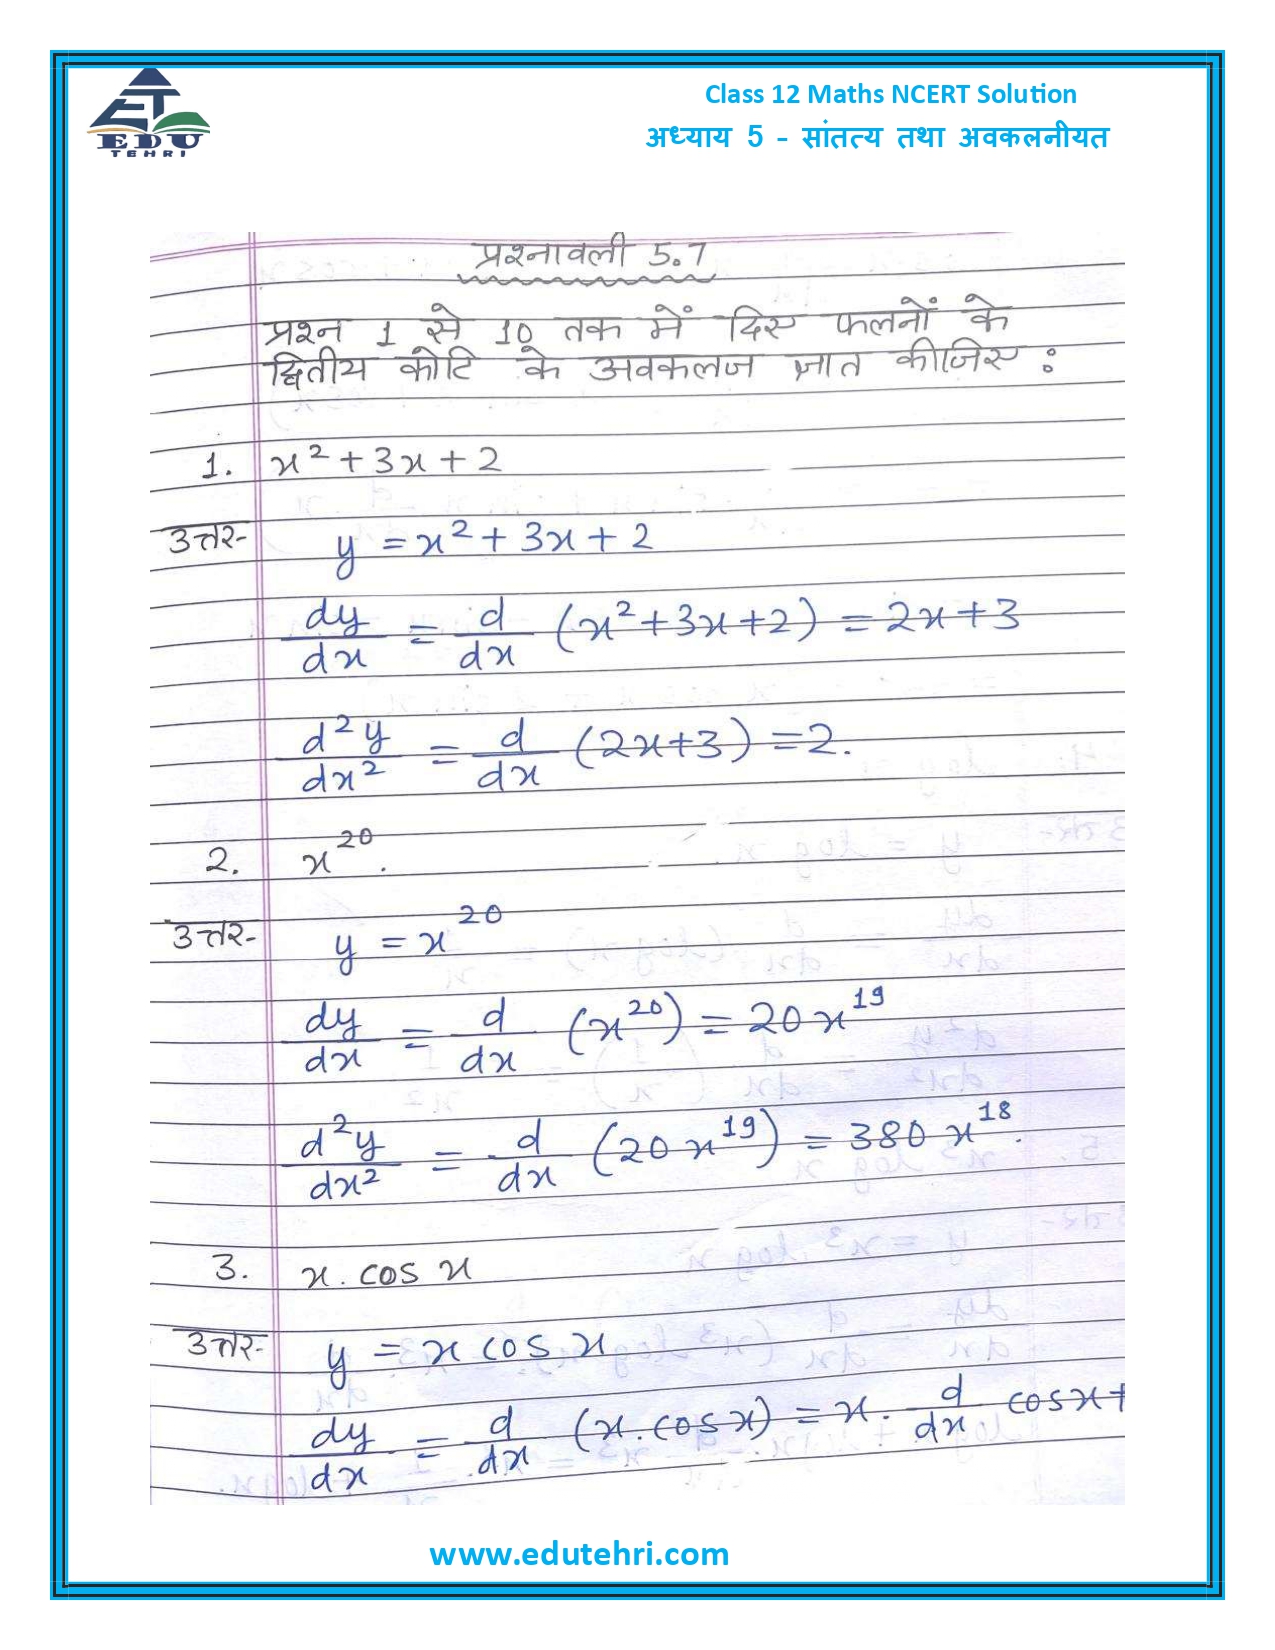 EDU
TEHRI
Class 12 Maths NCERT Solution
अध्याय 5 - सांतत्य तथा अवकलनीयत
प्रश्नावली 5.7
प्रश्न 1 से 10 तक में दिए फलनों के
द्वितीय कोटि के अवकलज ज्ञात कीजिए :
1. x² + 3x + 2
उत्तर- y = x² + 3x + 2
dy/dx = d/dx (x² + 3x + 2) = 2x + 3
d²y/dx² = d/dx (2x+3) = 2.
2. x²⁰.
उत्तर- y = x²⁰
dy/dx = d/dx (x²⁰) = 20x¹⁹
d²y/dx² = d/dx (20x¹⁹) = 380x¹⁸.
3. x . cos x
उत्तर- y = x cos x
dy/dx = d/dx (x . cos x) = x . d/dx cos x +
www.edutehri.com